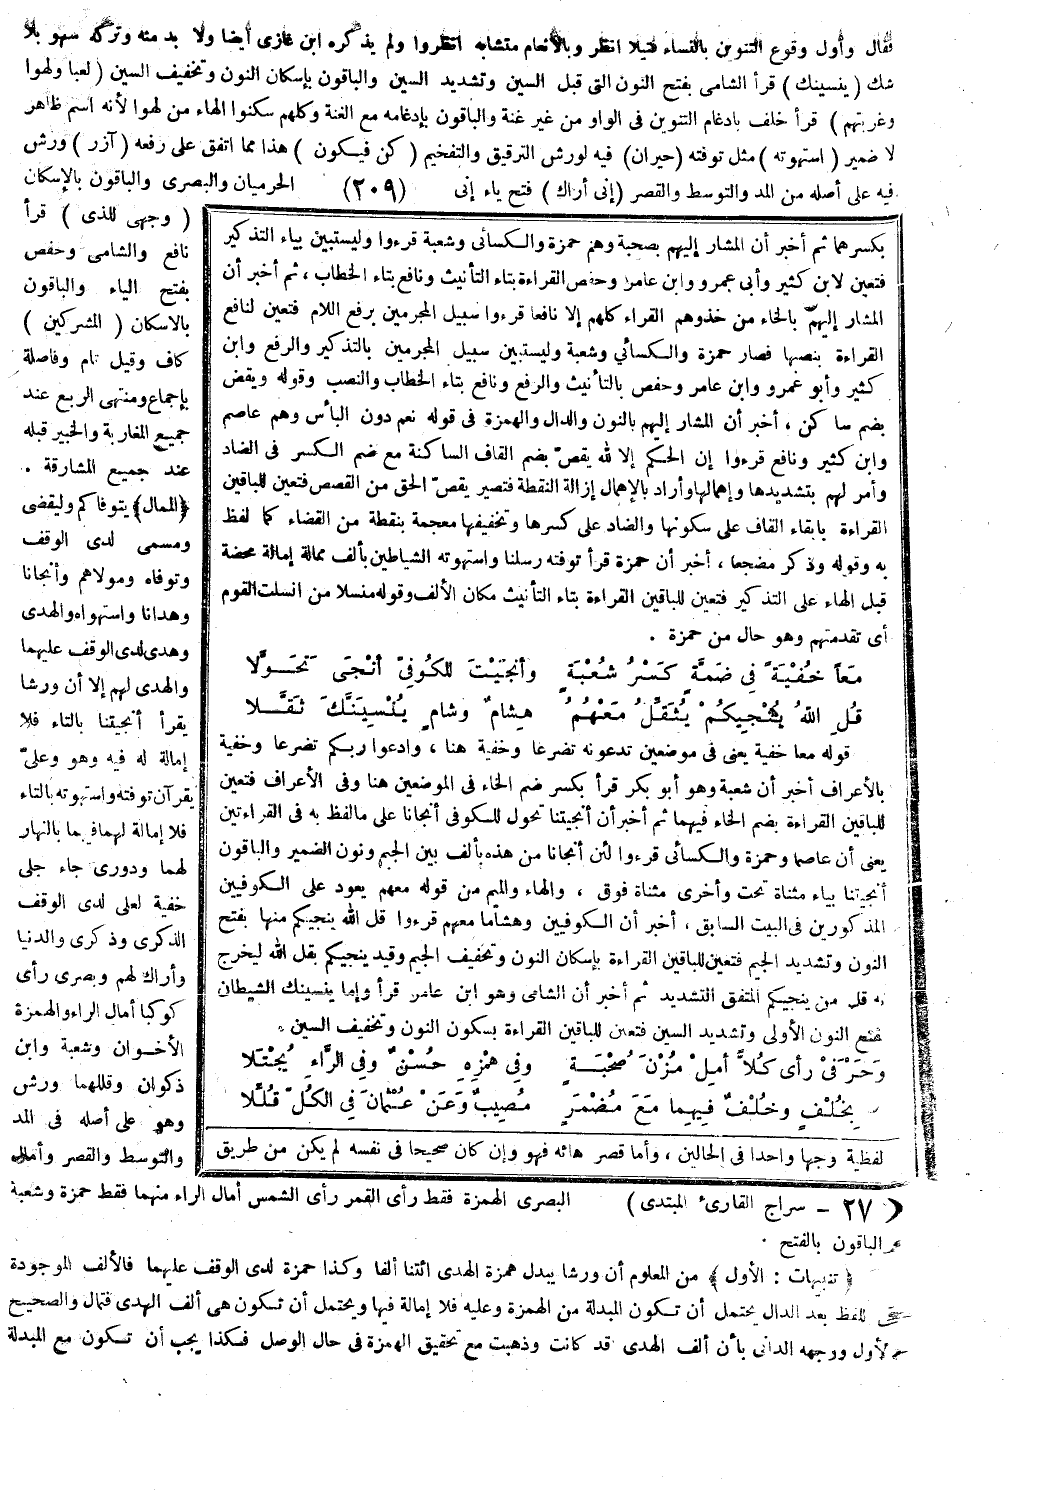 فقال وأول وقوع التنوين بالنساء فتيلا انظر وبالأنعام متشابه انظروا ولم يذكره ابن غازى أيضا ولا بد منه وتركه سهو بلا
شك (ينسينك) قرأ الشامى بفتح النون التى قبل السين وتشديد السين والباقون بإسكان النون وتخفيف السين (لعبا ولهوا
وغرتهم) قرأ خلف بادغام التنوين فى الواو من غير غنة والباقون بإدغامه مع الغنة وكلهم سكنوا الهاء من لهوا لأنه اسم ظاهر
لا ضمير (استهوته) مثل توفته (حيران) فيه لورش الترقيق والتفخيم (كن فيكون) هذا مما اتفق على رفعه (آزر) ورش
فيه على أصله من المد والتوسط والقصر (إنى أراك) فتح ياء إنى (٢٠٩) الحرميان والبصرى والباقون بالإسكان
(وجهى للذى) قرأ
نافع والشامى وحفص
بفتح الياء والباقون
بالاسكان (المشركين)
كاف وقيل تام وفاصلة
بإجماع ومنتهى الربع عند
جميع المغاربة والخبير قبله
عند جميع المشارقة .
﴿الممال﴾ يتوفاكم وليقضى
ومسمى لدى الوقف
وتوفاه ومولاهم وأنجانا
وهدانا واستهواه والهدى
وهدى لدى الوقف عليهما
والهدى لهم إلا أن ورشا
يقرأ أنجيتنا بالتاء فلا
إمالة له فيه وهو وعلىّ
يقرآن توفته واستهوته بالتاء
فلا إمالة لهما فيهما بالنهار
لهما ودورى جاء جلى
خفية لعلى لدى الوقف
الذكرى وذكرى والدنيا
وأراك لهم وبصرى رأى
كوكبا أمال الراء والهمزة
الأخوان وشعبة وابن
ذكوان وقللهما ورش
وهو على أصله فى المد
والتوسط والقصر وأمال
بكسرهما ثم أخبر أن المشار إليهم بصحبة وهم حمزة والكسائى وشعبة قرءوا وليستبين بياء التذكير
فتعين لابن كثير وأبى عمرو وابن عامر وحفص القراءة بتاء التأنيث ونافع بتاء الخطاب ، ثم أخبر أن
المشار إليهم بالخاء من خذوهم القراء كلهم إلا نافعا قرءوا سبيل المجرمين برفع اللام فتعين لنافع
القراءة بنصبها فصار حمزة والكسائى وشعبة وليستبين سبيل المجرمين بالتذكير والرفع وابن
كثير وأبو عمرو وابن عامر وحفص بالتأنيث والرفع ونافع بتاء الخطاب والنصب وقوله ويقض
بضم ساكن ، أخبر أن المشار إليهم بالنون والدال والهمزة فى قوله نعم دون البأس وهم عاصم
وابن كثير ونافع قرءوا إن الحكم إلا لله يقصّ بضم القاف الساكنة مع ضم الكسر فى الضاد
وأمر لهم بتشديدها وإهمالها وأراد بالإهمال إزالة النقطة فتصير يقصّ الحق من القصص فتعين للباقين
القراءة بابقاء القاف على سكونها والضاد على كسرها وتخفيفها معجمة بنقطة من القضاء كما لفظ
به وقوله وذكر مضجعا ، أخبر أن حمزة قرأ توفته رسلنا واستهوته الشياطين بألف ممالة إمالة محضة
قبل الهاء على التذكير فتعين للباقين القراءة بتاء التأنيث مكان الألف وقوله منسلا من انسلت القوم
أى تقدمتهم وهو حال من حمزة .
مَعاً خُفْيَةً فِى ضَمِّهِ كَسْرُ شُعْبَةٍ وأنجَيْتَ للكُوفِىّ أنْجَى تَحَوَّلا
قُلِ اللهُ يُنْجِيكُمْ يُثَقِّلُ مَعْهُمُ هِشامٌ وشامٍ يُنْسِيَنَّكَ ثَقَّلا
قوله معا خفية يعنى فى موضعين تدعونه تضرعا وخفية هنا ، وادعوا ربكم تضرعا وخفية
بالأعراف أخبر أن شعبة وهو أبو بكر قرأ بكسر ضم الخاء فى الموضعين هنا وفى الأعراف فتعين
للباقين القراءة بضم الخاء فيهما ثم أخبر أن أنجيتنا تحول للكوفى أنجانا على مالفظ به فى القراءتين
يعنى أن عاصما وحمزة والكسائى قرءوا لئن أنجانا من هذه بألف بين الجيم ونون الضمير والباقون
أنجيتنا بياء مثناة تحت وأخرى مثناة فوق ، والهاء والميم من قوله معهم يعود على الكوفيين
المذكورين فى البيت السابق ، أخبر أن الكوفيين وهشاما معهم قرءوا قل الله ينجيكم منها بفتح
النون وتشديد الجيم فتعين للباقين القراءة بإسكان النون وتخفيف الجيم وقيد ينجيكم بقل الله ليخرج
به قل من ينجيكم المتفق التشديد ثم أخبر أن الشامى وهو ابن عامر قرأ وإما ينسينك الشيطان
بفتح النون الأولى وتشديد السين فتعين للباقين القراءة بسكون النون وتخفيف السين .
وَحَرْفَىْ رأى كُلاًّ أمِلْ مُزْنَ صُحْبَةٍ وفِى هَمْزِهِ حُسْنٌ وفِى الرَّاءِ يُجْتَلا
بِخُلْفٍ وخُلْفٌ فِيهِما مَعَ مُضْمَرٍ مُصِيبٌ وَعَنْ عُثْمانَ فِى الكُلّ قُلِّلا
لفظية وجها واحدا فى الحالين ، وأما قصر هائه فهو وإن كان صحيحا فى نفسه لم يكن من طريق
(٢٧ - سراج القارىء المبتدى) البصرى الهمزة فقط رأى القمر رأى الشمس أمال الراء منهما فقط حمزة وشعبة
والباقون بالفتح .
﴿تنبيهات : الأول﴾ من المعلوم أن ورشا يبدل همزة الهدى ائتنا ألفا وكذا حمزة لدى الوقف عليهما فالألف الموجودة
فى اللفظ بعد الدال يحتمل أن تكون المبدلة من الهمزة وعليه فلا إمالة فيها ويحتمل أن تكون هى ألف الهدى فتمال والصحيح
الأول ووجهه الدانى بأن ألف الهدى قد كانت وذهبت مع تحقيق الهمزة فى حال الوصل فكذا يجب أن تكون مع المبدلة